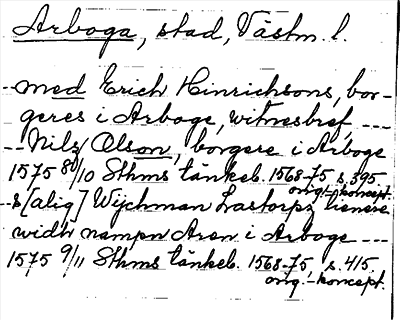 Arboga, stad, Västm. l.
--med Erich Hinrichsons, bor-
geres i Arboge, witnesbref, ---
--Nilz Olson, borgere i Arboge
1575 8/10 Sthms tänkeb. 1568-75 s. 395.
orig.-koncept.
s[alig] Wijchman Lastorps tienere
widh nampn Aren i Arboge ---
1575 9/11 Sthms tänkeb. 1568-75 s. 415.
orig.-koncept.